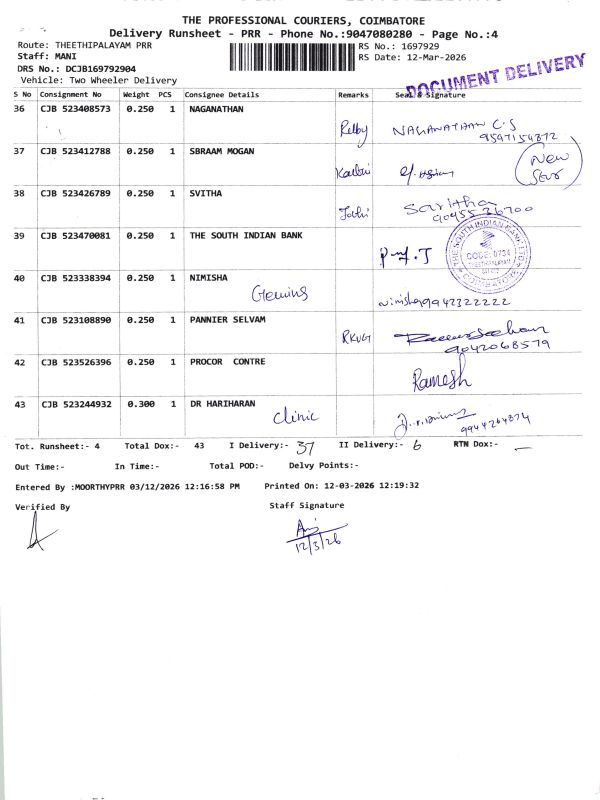 THE PROFESSIONAL COURIERS, COIMBATORE
Delivery Runsheet - PRR - Phone No.:9047080280 - Page No.:4
Route: THEETHIPALAYAM PRR
RS No.: 1697929
Staff: MANI
RS Date: 12-Mar-2026
DRS No.: DCJB169792904
Vehicle: Two Wheeler Delivery
DOCUMENT DELIVERY
S No Consignment No Weight PCS Consignee Details Remarks Seal & Signature
36 CJB 523408573 0.250 1 NAGANATHAN
NAGANATHAN C.S
9597154872
37 CJB 523412788 0.250 1 SBRAAM MOGAN
New
38 CJB 523426789 0.250 1 SVITHA
Saritha
39 CJB 523470081 0.250 1 THE SOUTH INDIAN BANK
THE SOUTH INDIAN BANK LTD.
CODE: 0734
THEETHIPALAYAM
COIMBATORE
40 CJB 523338394 0.250 1 NIMISHA
Gemins
Nimisha9942322222
41 CJB 523108890 0.250 1 PANNIER SELVAM
9042068579
42 CJB 523526396 0.250 1 PROCOR CONTRE
Ramesh
43 CJB 523244932 0.300 1 DR HARIHARAN
Clinic
9944264874
Tot. Runsheet:- 4 Total Dox:- 43 I Delivery:- 37 II Delivery:- 6 RTN Dox:- —
Out Time:- In Time:- Total POD:- Delvy Points:-
Entered By :MOORTHYPRR 03/12/2026 12:16:58 PM Printed On: 12-03-2026 12:19:32
Verified By Staff Signature
12/3/26